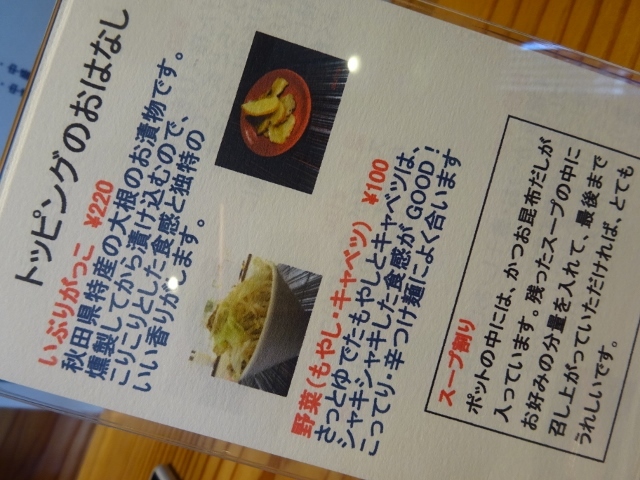 トッピングのおはなし
いぶりがっこ ¥220
秋田県特産の大根のお漬物です。
燻製してから漬け込むので、
こりこりとした食感と独特の
いい香りがします。
野菜(もやし・キャベツ) ¥100
さっとゆでたもやしとキャベツは、
シャキシャキした食感がGOOD!
こってり・辛つけ麺によく合います
スープ割り
ポットの中には、かつお昆布だしが
入っています。残ったスープの中に
お好みの分量を入れて、最後まで
召し上がっていただければ、とても
うれしいです。